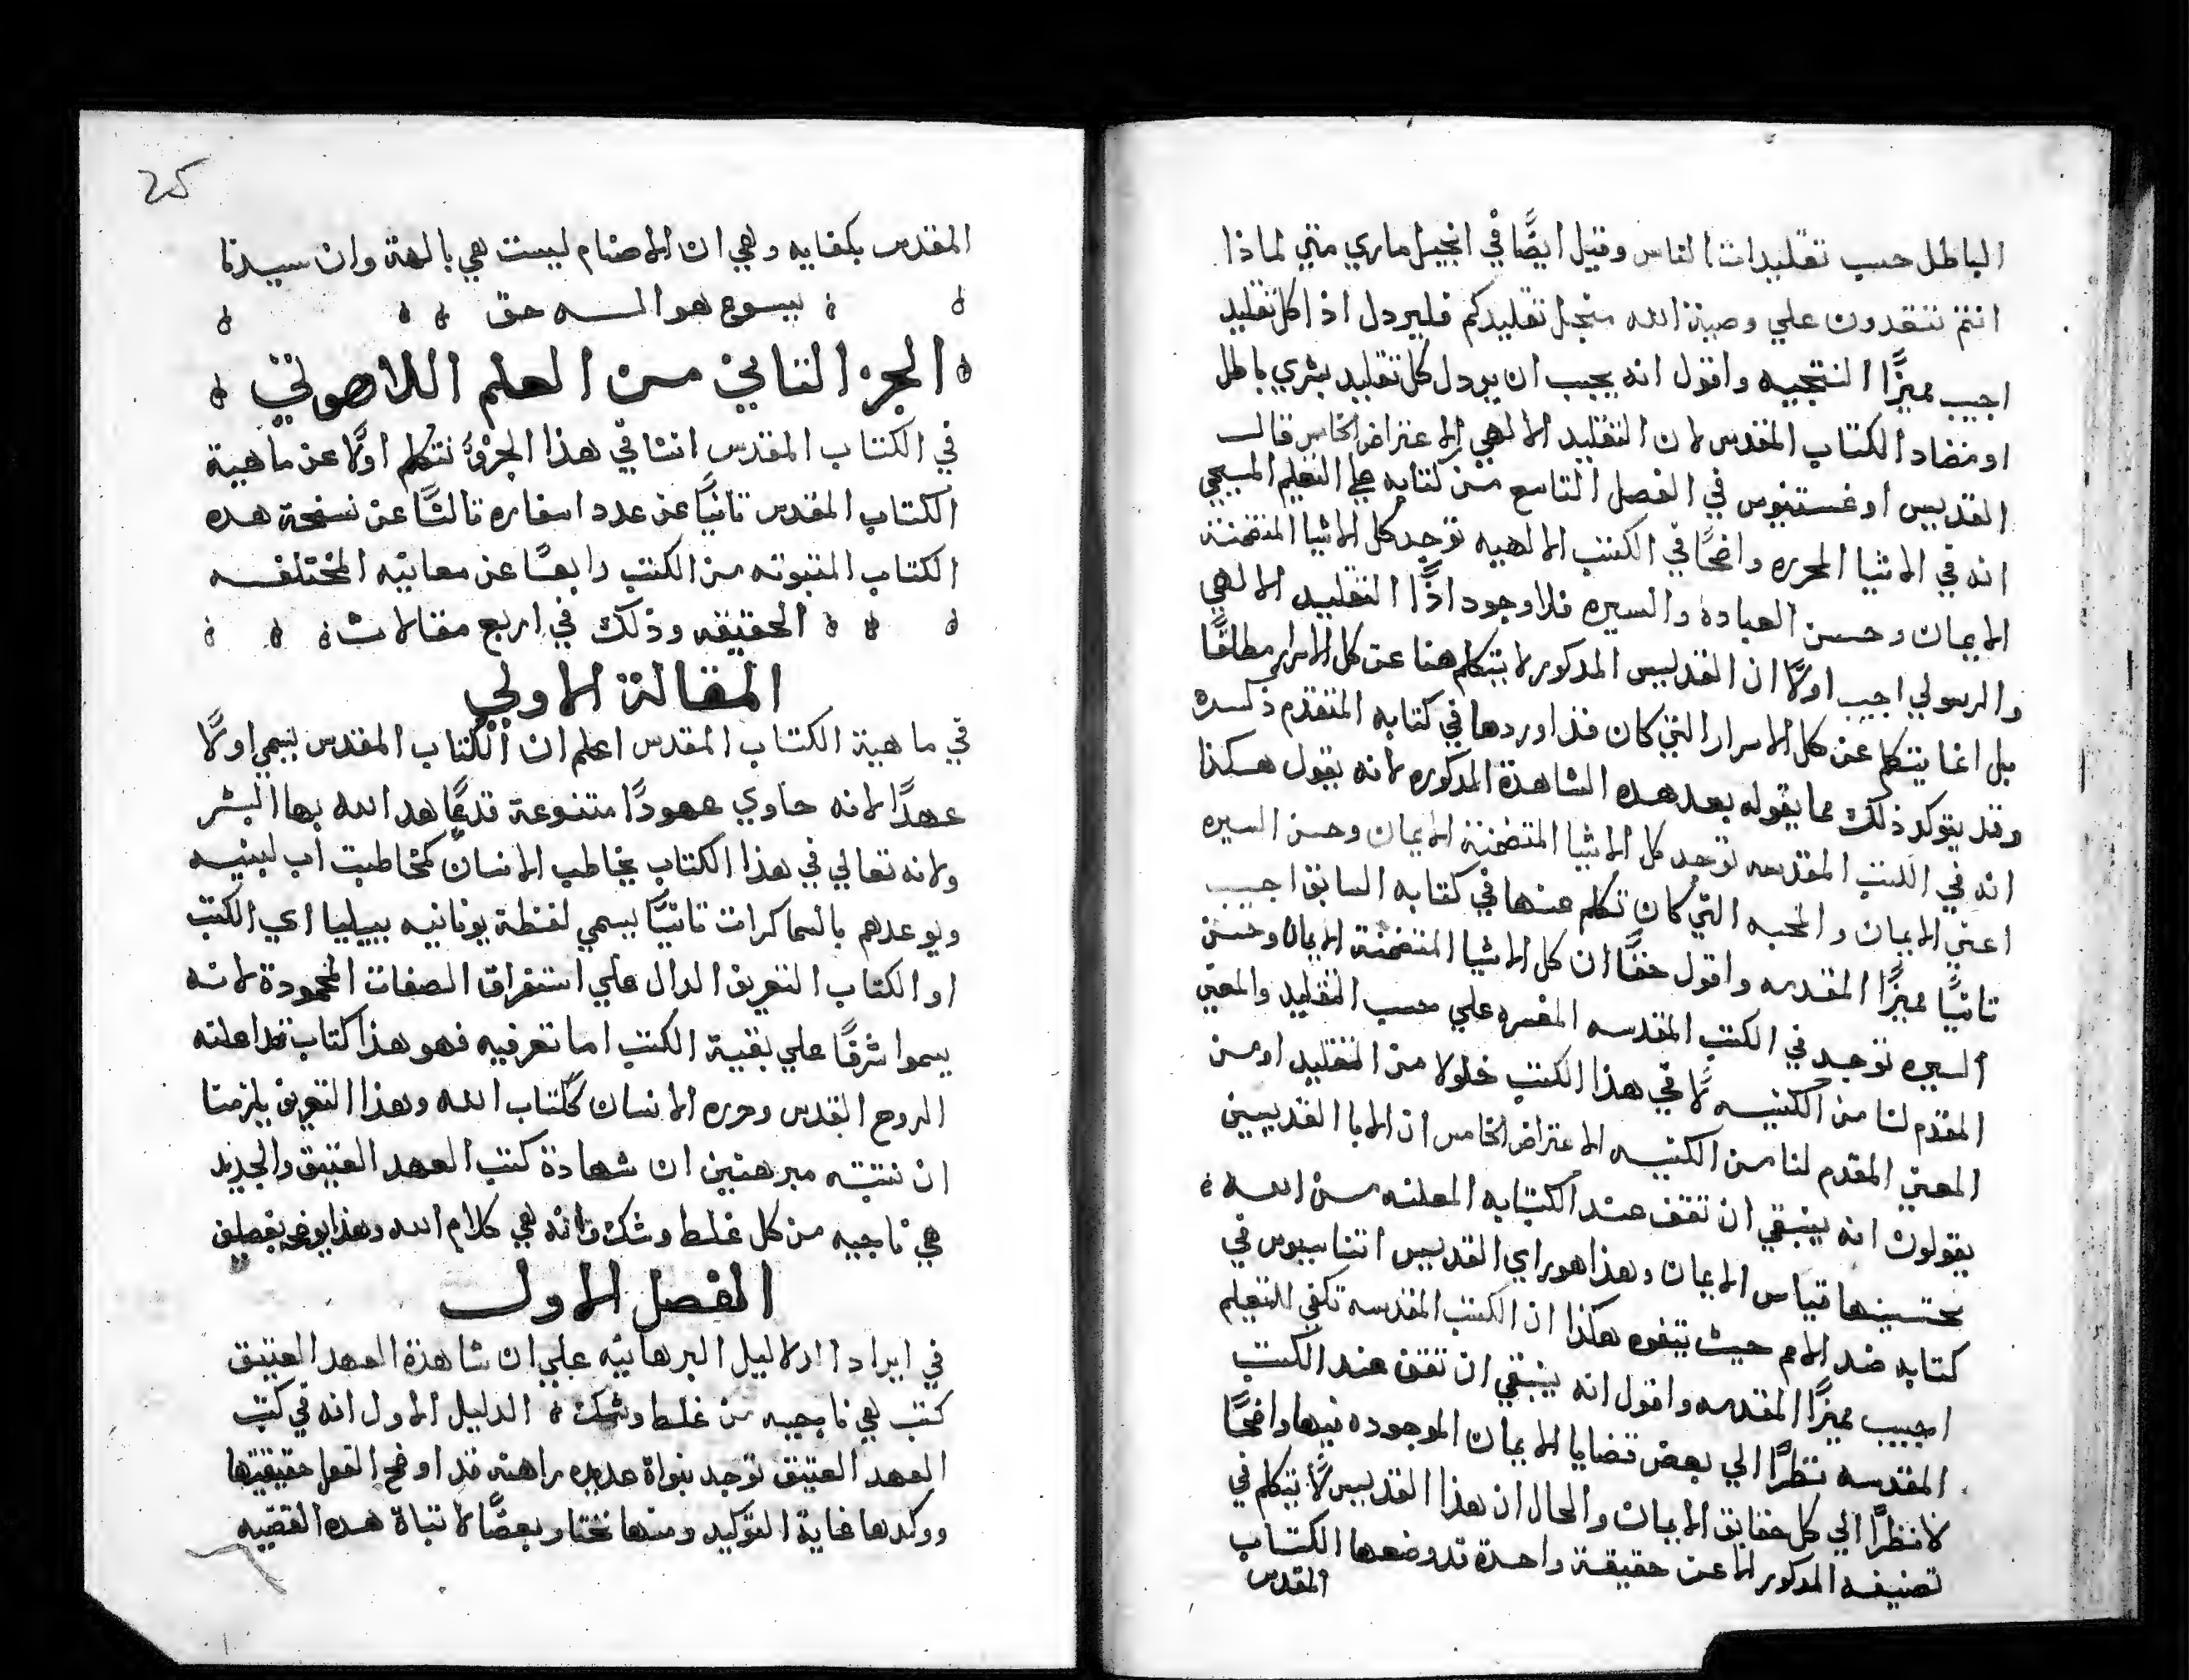 الباطل حسب تقليدات الناس وقيل ايضًا في انجيل ماري متي لماذا
انتم تتعدون علي وصية الله منجل تقليدكم فليردل اذا كل تقليد
اجيب مميزًا النتجيه واقول انه يجب ان يردل كل تقليد بشري باطل
او مضاد الكتاب المقدس لان التقليد الالهي الاعتراض الخامس قال
القديس اوغستنيوس في الفصل التاسع من كتابه علي التعليم المسيحي
انه في الاشيا المحرره واضحًا في الكتب الالهيه توجد كل الاشيا المتضمنة
الايمان وحسن العبادة والسيره فلا وجود اذًا التقليد الالهي
والرسولي اجيب اولًا ان القديس المدكور لا يتكلم هنا عن كل الاسرار مطلقًا
بل انما يتكلم عن كل الاسرار التي كان قد اوردها في كتابه المتقدم ذكره
وقد يتوكد ذلك مما يقوله بعد هده الشاهدة المدكوره لانه يقول هكذا
انه في الكتب المقدسه توجد كل الاشيا المتضمنة الايمان وحسن السيره
اعني الايمان والمحبه التي كان تكلم عنها في كتابه السابق اجيب
تانيًا مميزًا المقدمه واقول حقًا ان كل الاشيا المتضمنة الايمان وحسن
السيره توجد في الكتب المقدسه المفسره علي حسب التقليد والمعني
المقدم لنا من الكنيسه لا في هذا الكتب خلولا من التقليد او من
المعني المقدم لنا من الكنيسه الاعتراض الخامس ان الابا القديسين
يقولون انه ينبغي ان نقف عند الكتابه المعلنه من الله
محتسبينها قياس الايمان وهذا هو راي القديس اتناسيوس في
كتابه ضد الامم حيث يتفوه هكذا ان الكتب المقدسه تكفي للتعليم
اجيب مميزًا المقدمه واقول انه ينبغي ان نقف عند الكتب
المقدسه نظرًا الي بعض قضايا الايمان الموجوده فيها واضحًا
لا نظرًا الي كل حقايق الايمان والحال ان هذا القديس لا يتكلم في
تصنيفه المدكور الا عن حقيقة واحدة قد وضعها الكتاب
المقدس
25
المقدس بكفايه وهي ان الاصنام ليست هي بالهة وان سيدنا
يسوع هو اله حق
الجز التاني من العلم اللاهوتي
في الكتاب المقدس اننا في هذا الجزؤ نتكلم اولًا عن ماهية
الكتاب المقدس تانيًا عن عدد اسفاره تالتًا عن نسخة هده
الكتاب المتبوته من الكتب رابعًا عن معانيه المختلفه
الحقيقه وذلك في اربع مقالات
المقالة الاولي
في ماهية الكتاب المقدس اعلم ان الكتاب المقدس يسمي اولًا
عهدًا لانه حاوي عهودًا متنوعة قد عاهد الله بها البشر
ولانه تعالي في هذا الكتاب يخاطب الانسان كمخاطبت اب لبنيه
ويوعدهم بالمماكرات تانيًا يسمي لفظة يونانيه بيبليا اي الكتب
او الكتاب التعريف الدال علي استغراق الصفات المحمودة لانه
يسموا شرفًا علي بقية الكتب اما تعرفيه فهو هذا كتاب قد اعلنه
الروح القدس وحرره الانسان ككتاب الله وهذا التعريف يلزمنا
ان نتبته مبرهنين ان شهادة كتب العهد العتيق والجديد
هي ناجيه من كل غلط وشك وانه هي كلام الله وهذا يوضح بفصلين
الفصل الاول
في ايراد الدلاليل البرهانيه علي ان شاهدة العهد العتيق
كتب هي ناجيه من غلط وشك الدليل الاول انه في كتب
العهد العتيق توجد نبواة عديده راهنه قد اوضح الفعل حقيقتها
ووكدها غاية التوكيد ومنها نختار بعضًا لاتباة هده القضيه